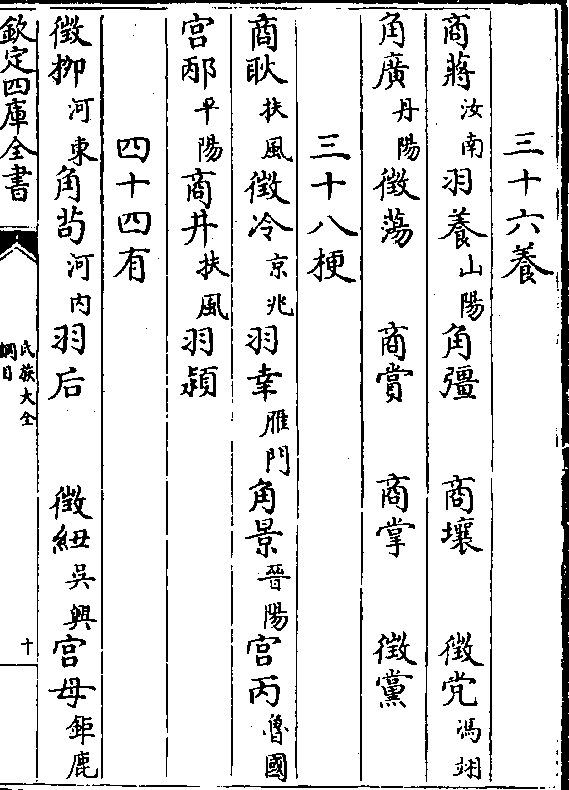 三十六養
商蔣汝南羽養山陽角彊商壤徵党馮翊
角廣丹陽徵蕩商賞商掌徵黨
三十八梗
商耿扶風徵冷京兆羽幸雁門角景晉陽宫丙魯國
宫邴平陽商井扶風羽潁
四十四有
徵抑河東角茍河内羽后徵紐吳興宫母鉅鹿
欽定四庫全書
氏族大全
綱目
十